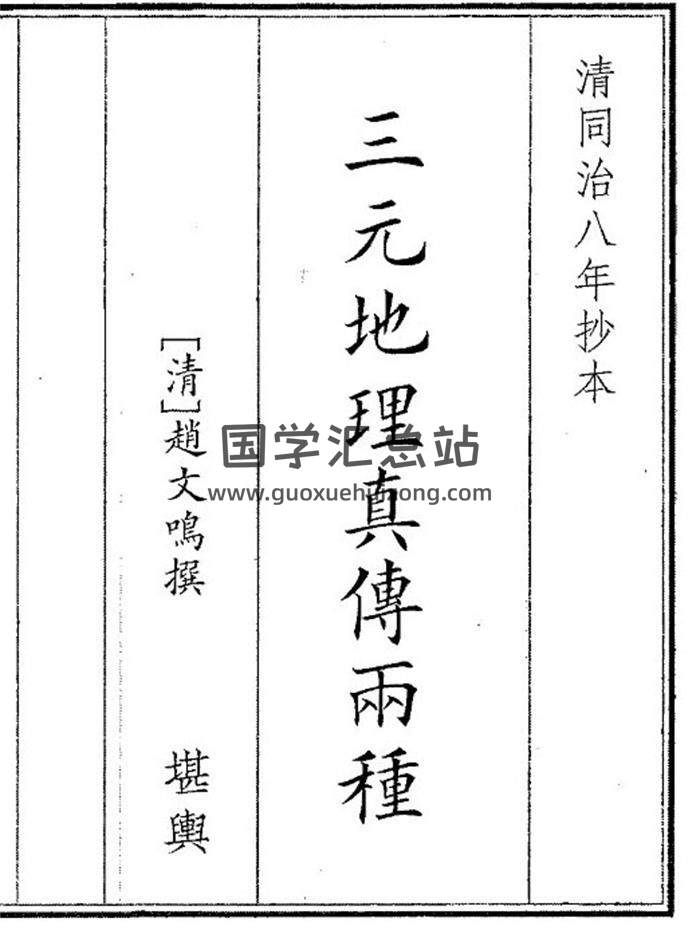 清同治八年抄本
三元地理真傳兩種
［清］趙文鳴撰
堪輿
国学汇总站
www.guoxuehuizong.com